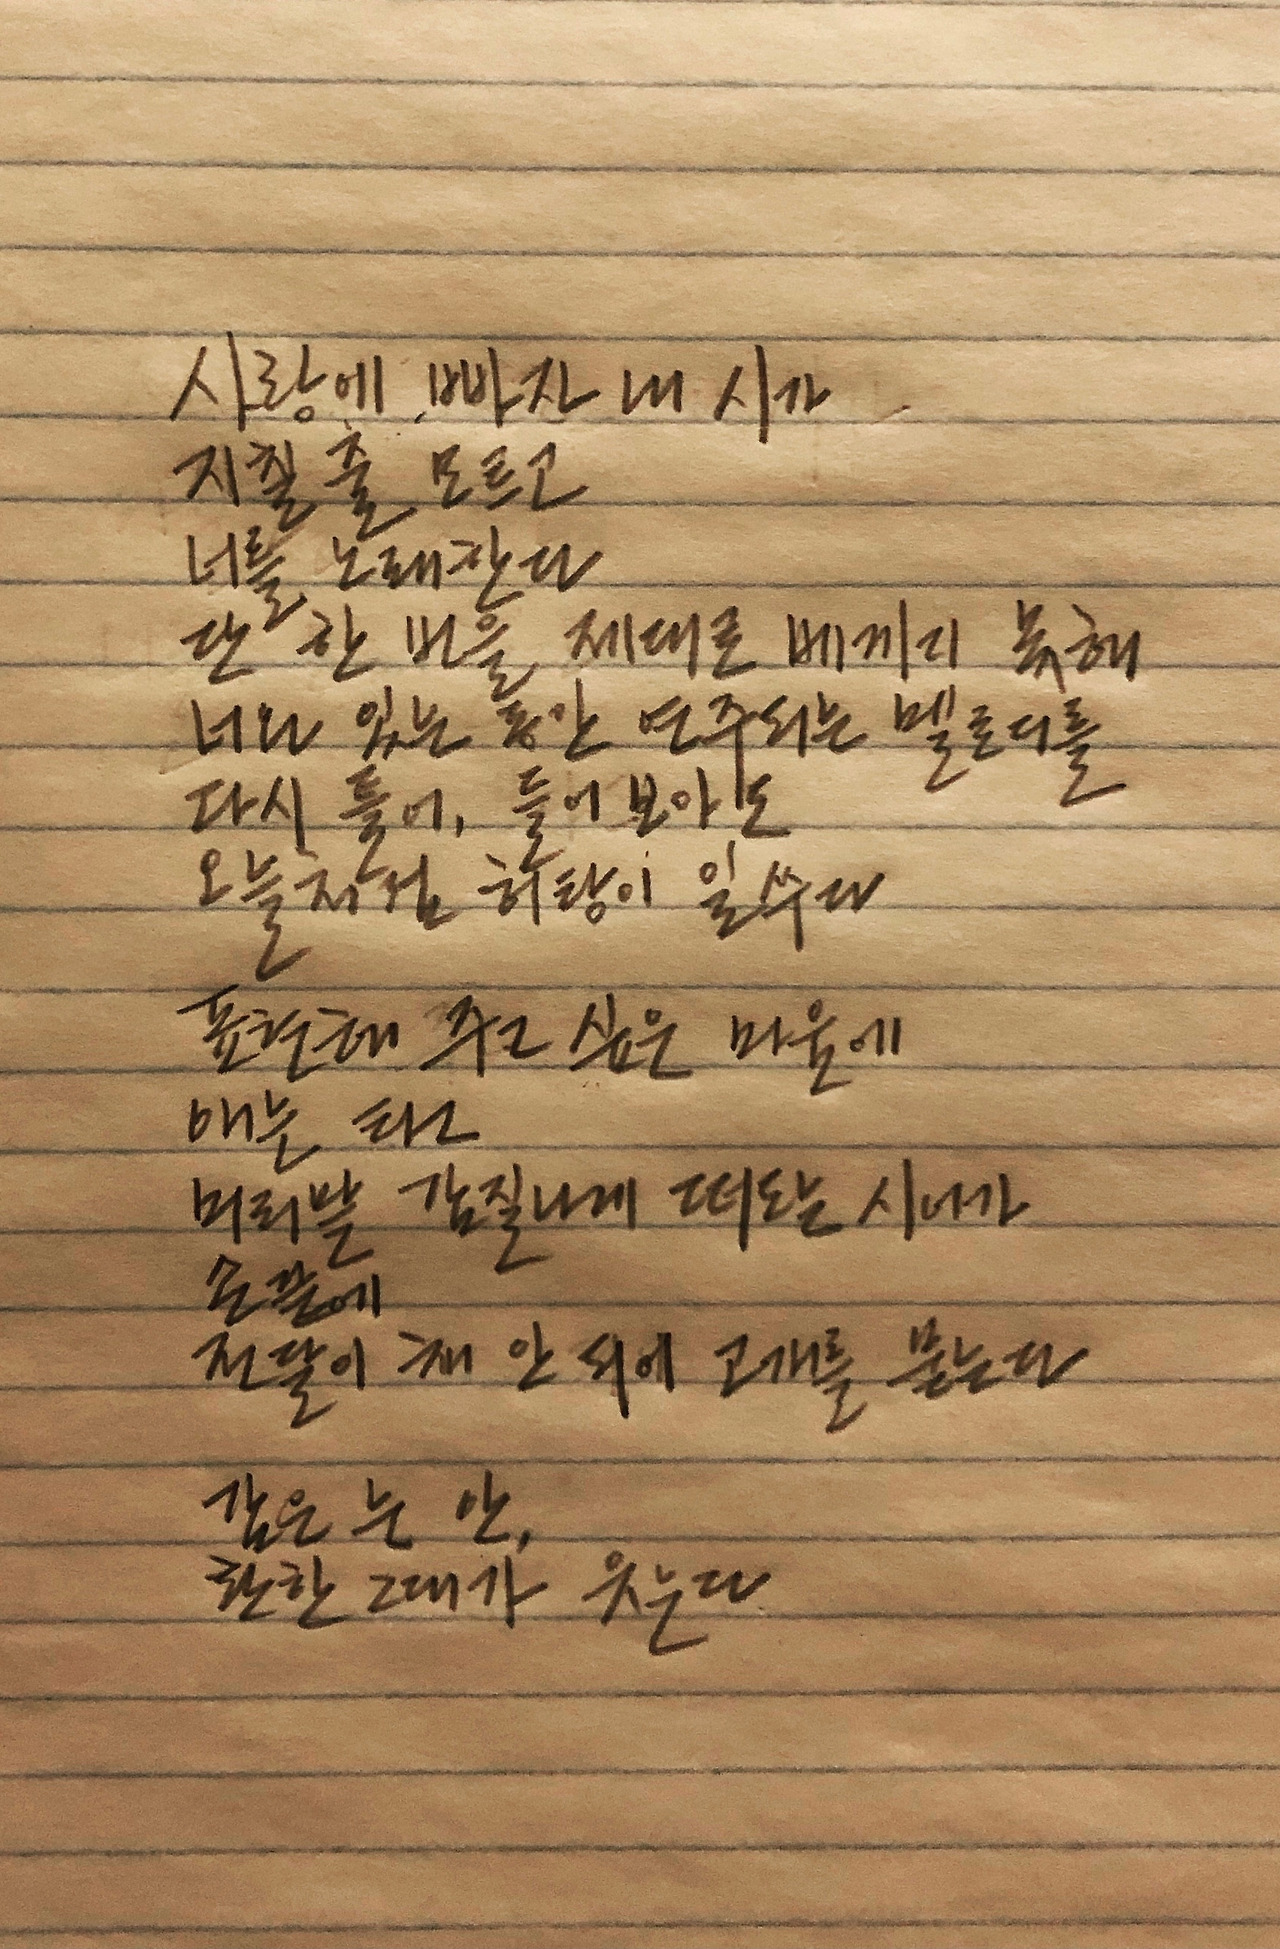 사랑에 빠진 내 시가
지칠 줄 모르고
너를 노래한다
단 한 번을 제대로 베끼지 못해
너와 있는 동안 연주되는 멜로디를
다시 틀어, 들어보아도
오늘처럼 허탕이 일쑤다
표현해 주고 싶은 마음에
애는 타고
머리맡 감질나게 떠도는 시어가
손끝에
전달이 채 안 되어 고개를 묻는다
감은 눈 안,
환한 그대가 웃는다